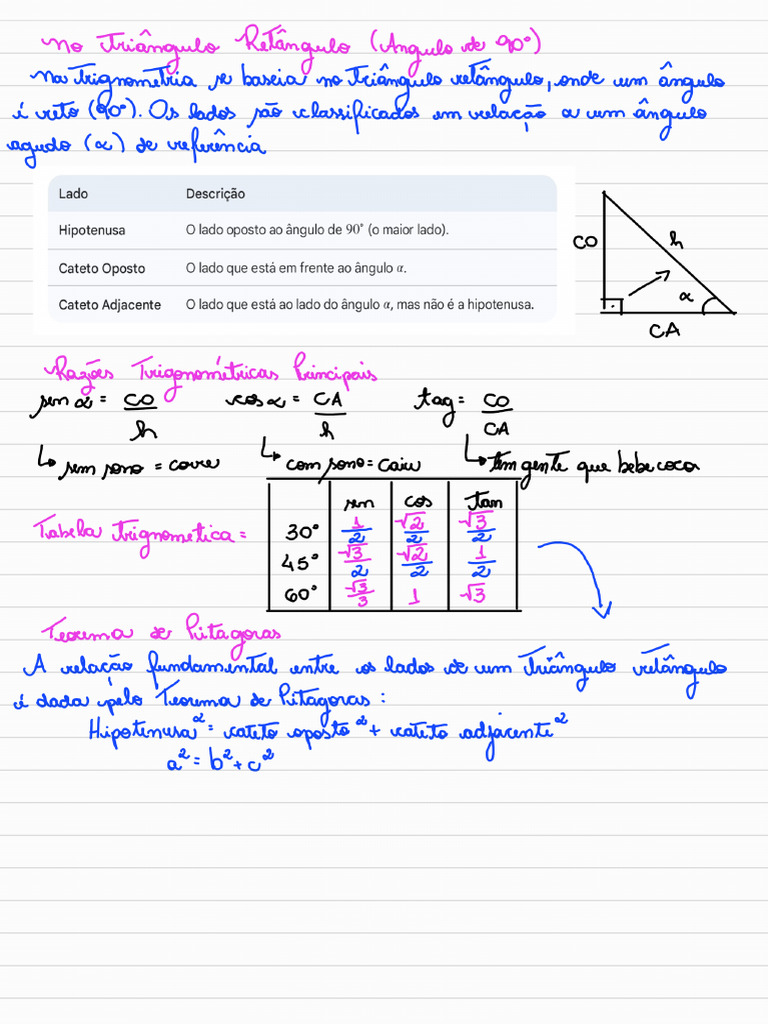 No Triângulo Retângulo (Angulo de 90°)
Na Trignometria se baseia no Triângulo retângulo, onde um ângulo
é reto (90°). Os lados são classificados em relação a um ângulo
agudo (α) de referência
Lado Descrição
Hipotenusa O lado oposto ao ângulo de 90° (o maior lado).
Cateto Oposto O lado que está em frente ao ângulo α.
Cateto Adjacente O lado que está ao lado do ângulo α, mas não é a hipotenusa.
CO h
α
CA
Razões Trigonométricas Principais
sen α = CO/h cos α = CA/h tag = CO/CA
↳ sem sono = corre ↳ com sono = caiu ↳ tem gente que bebe coca
Tabela trignometica =
sen cos tam
30° 1/2 √2/2 √3/2
45° √3/2 √2/2 1/2
60° √3/3 1 √3
Teorema de Pitagoras
A relação fundamental entre os lados de um Triângulo retângulo
é dada pelo Teorema de Pitagoras:
Hipotenusa² = cateto oposto² + cateto adjacente²
a² = b² + c²